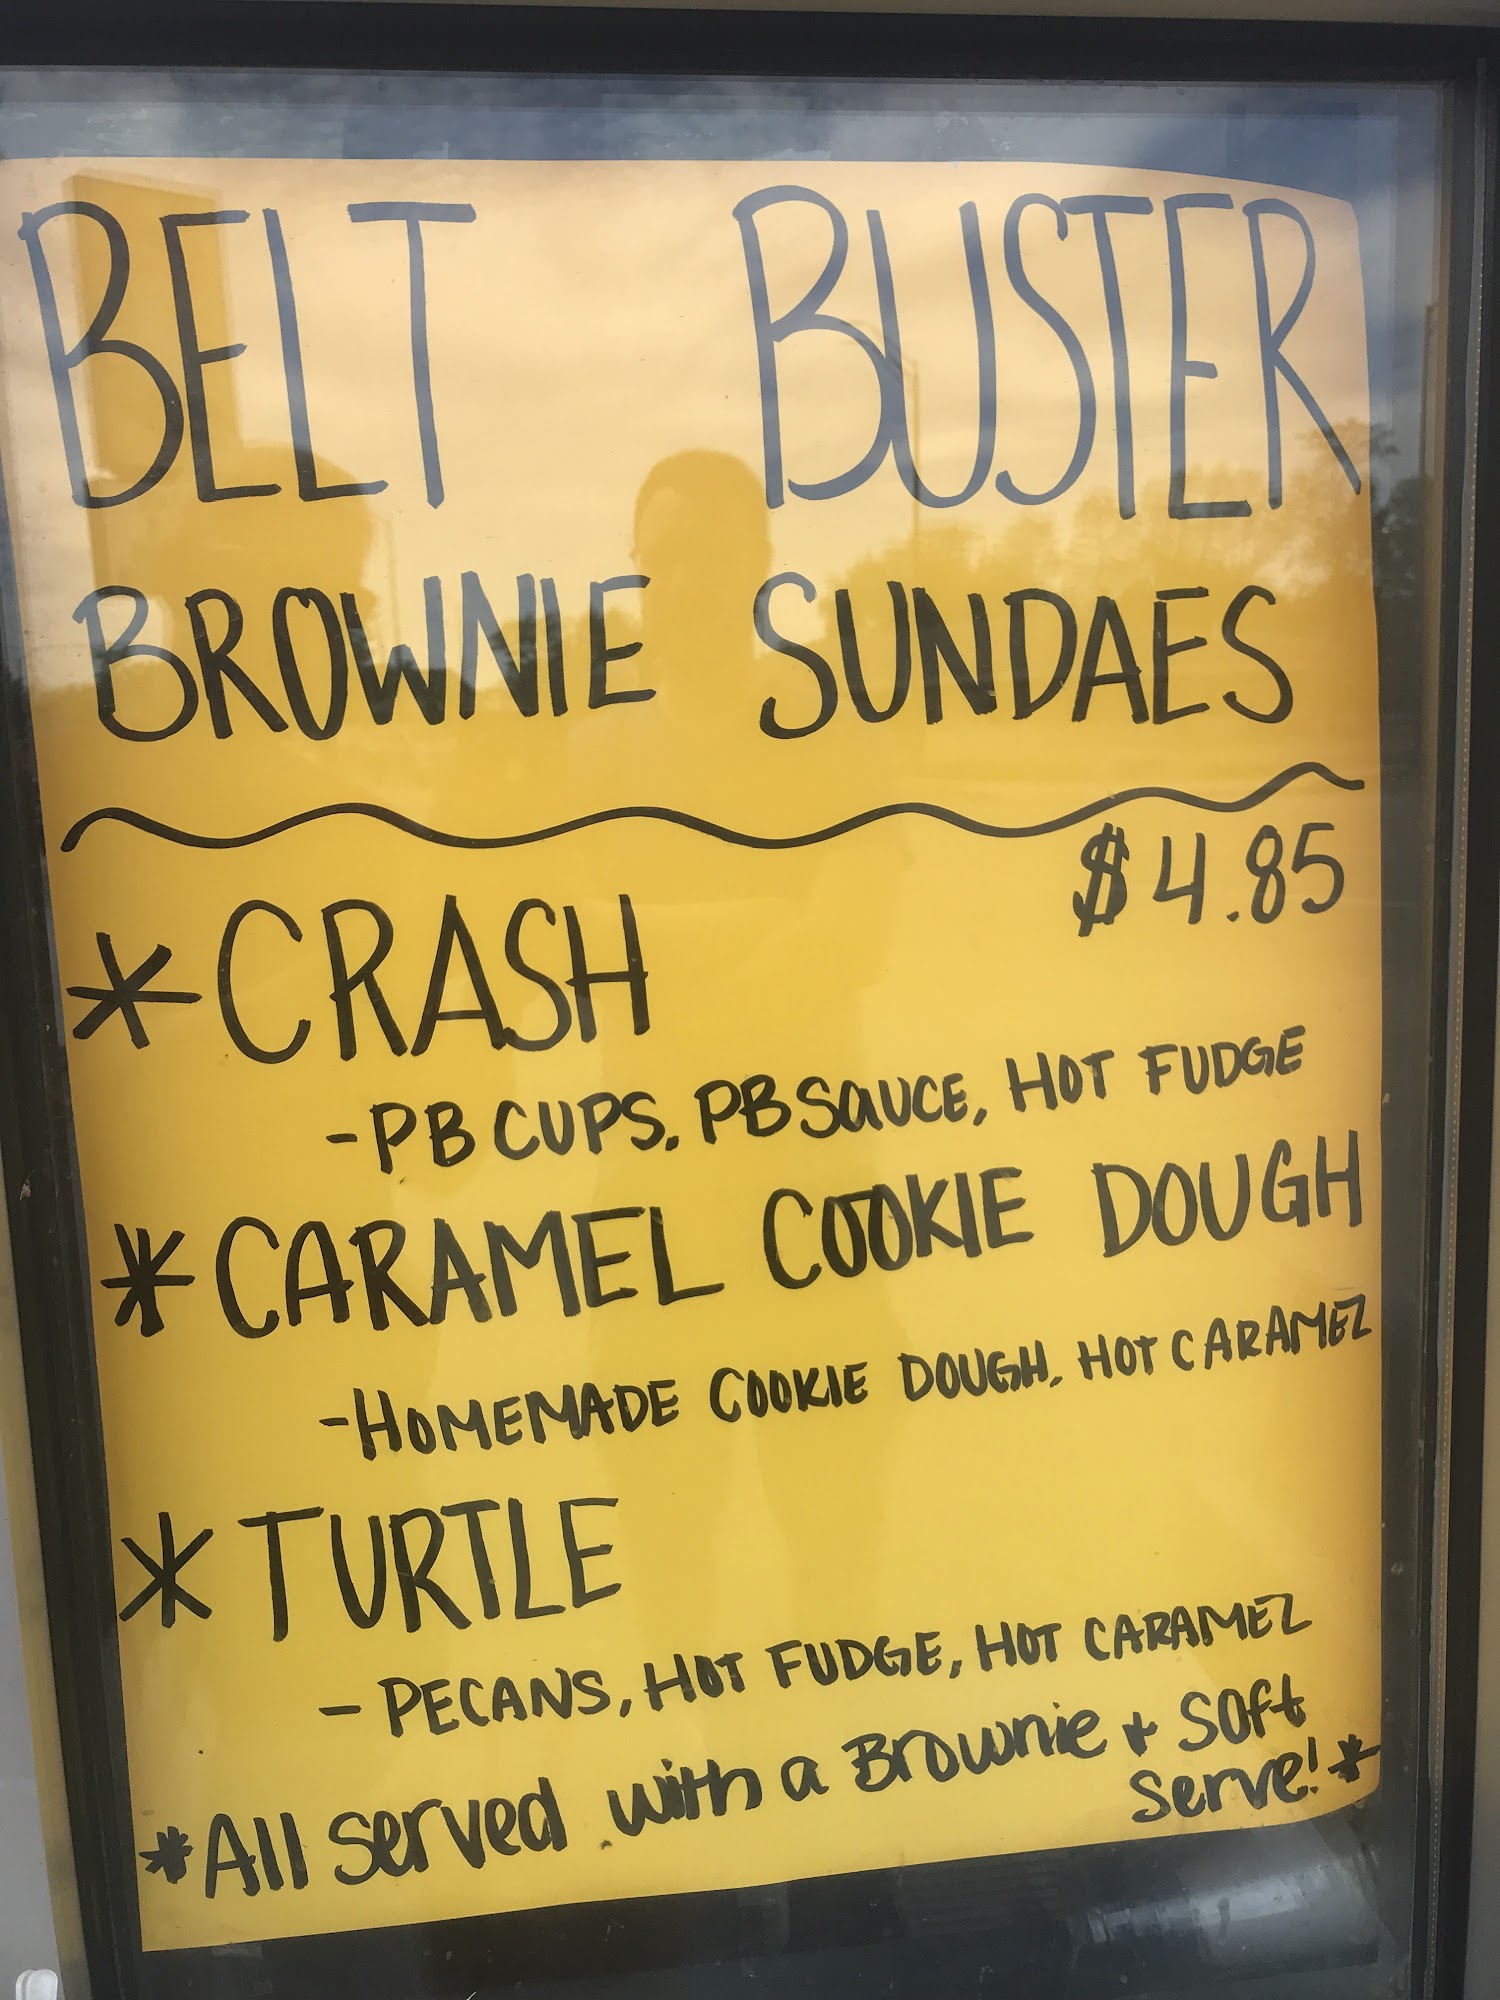 BELT BUSTER
BROWNIE SUNDAES
$4.85
*CRASH
-PB CUPS, PB SAUCE, HOT FUDGE
*CARAMEL COOKIE DOUGH
-HOMEMADE COOKIE DOUGH, HOT CARAMEL
*TURTLE
- PECANS, HOT FUDGE, HOT CARAMEL
*All served with a Brownie + Soft
Serve!*